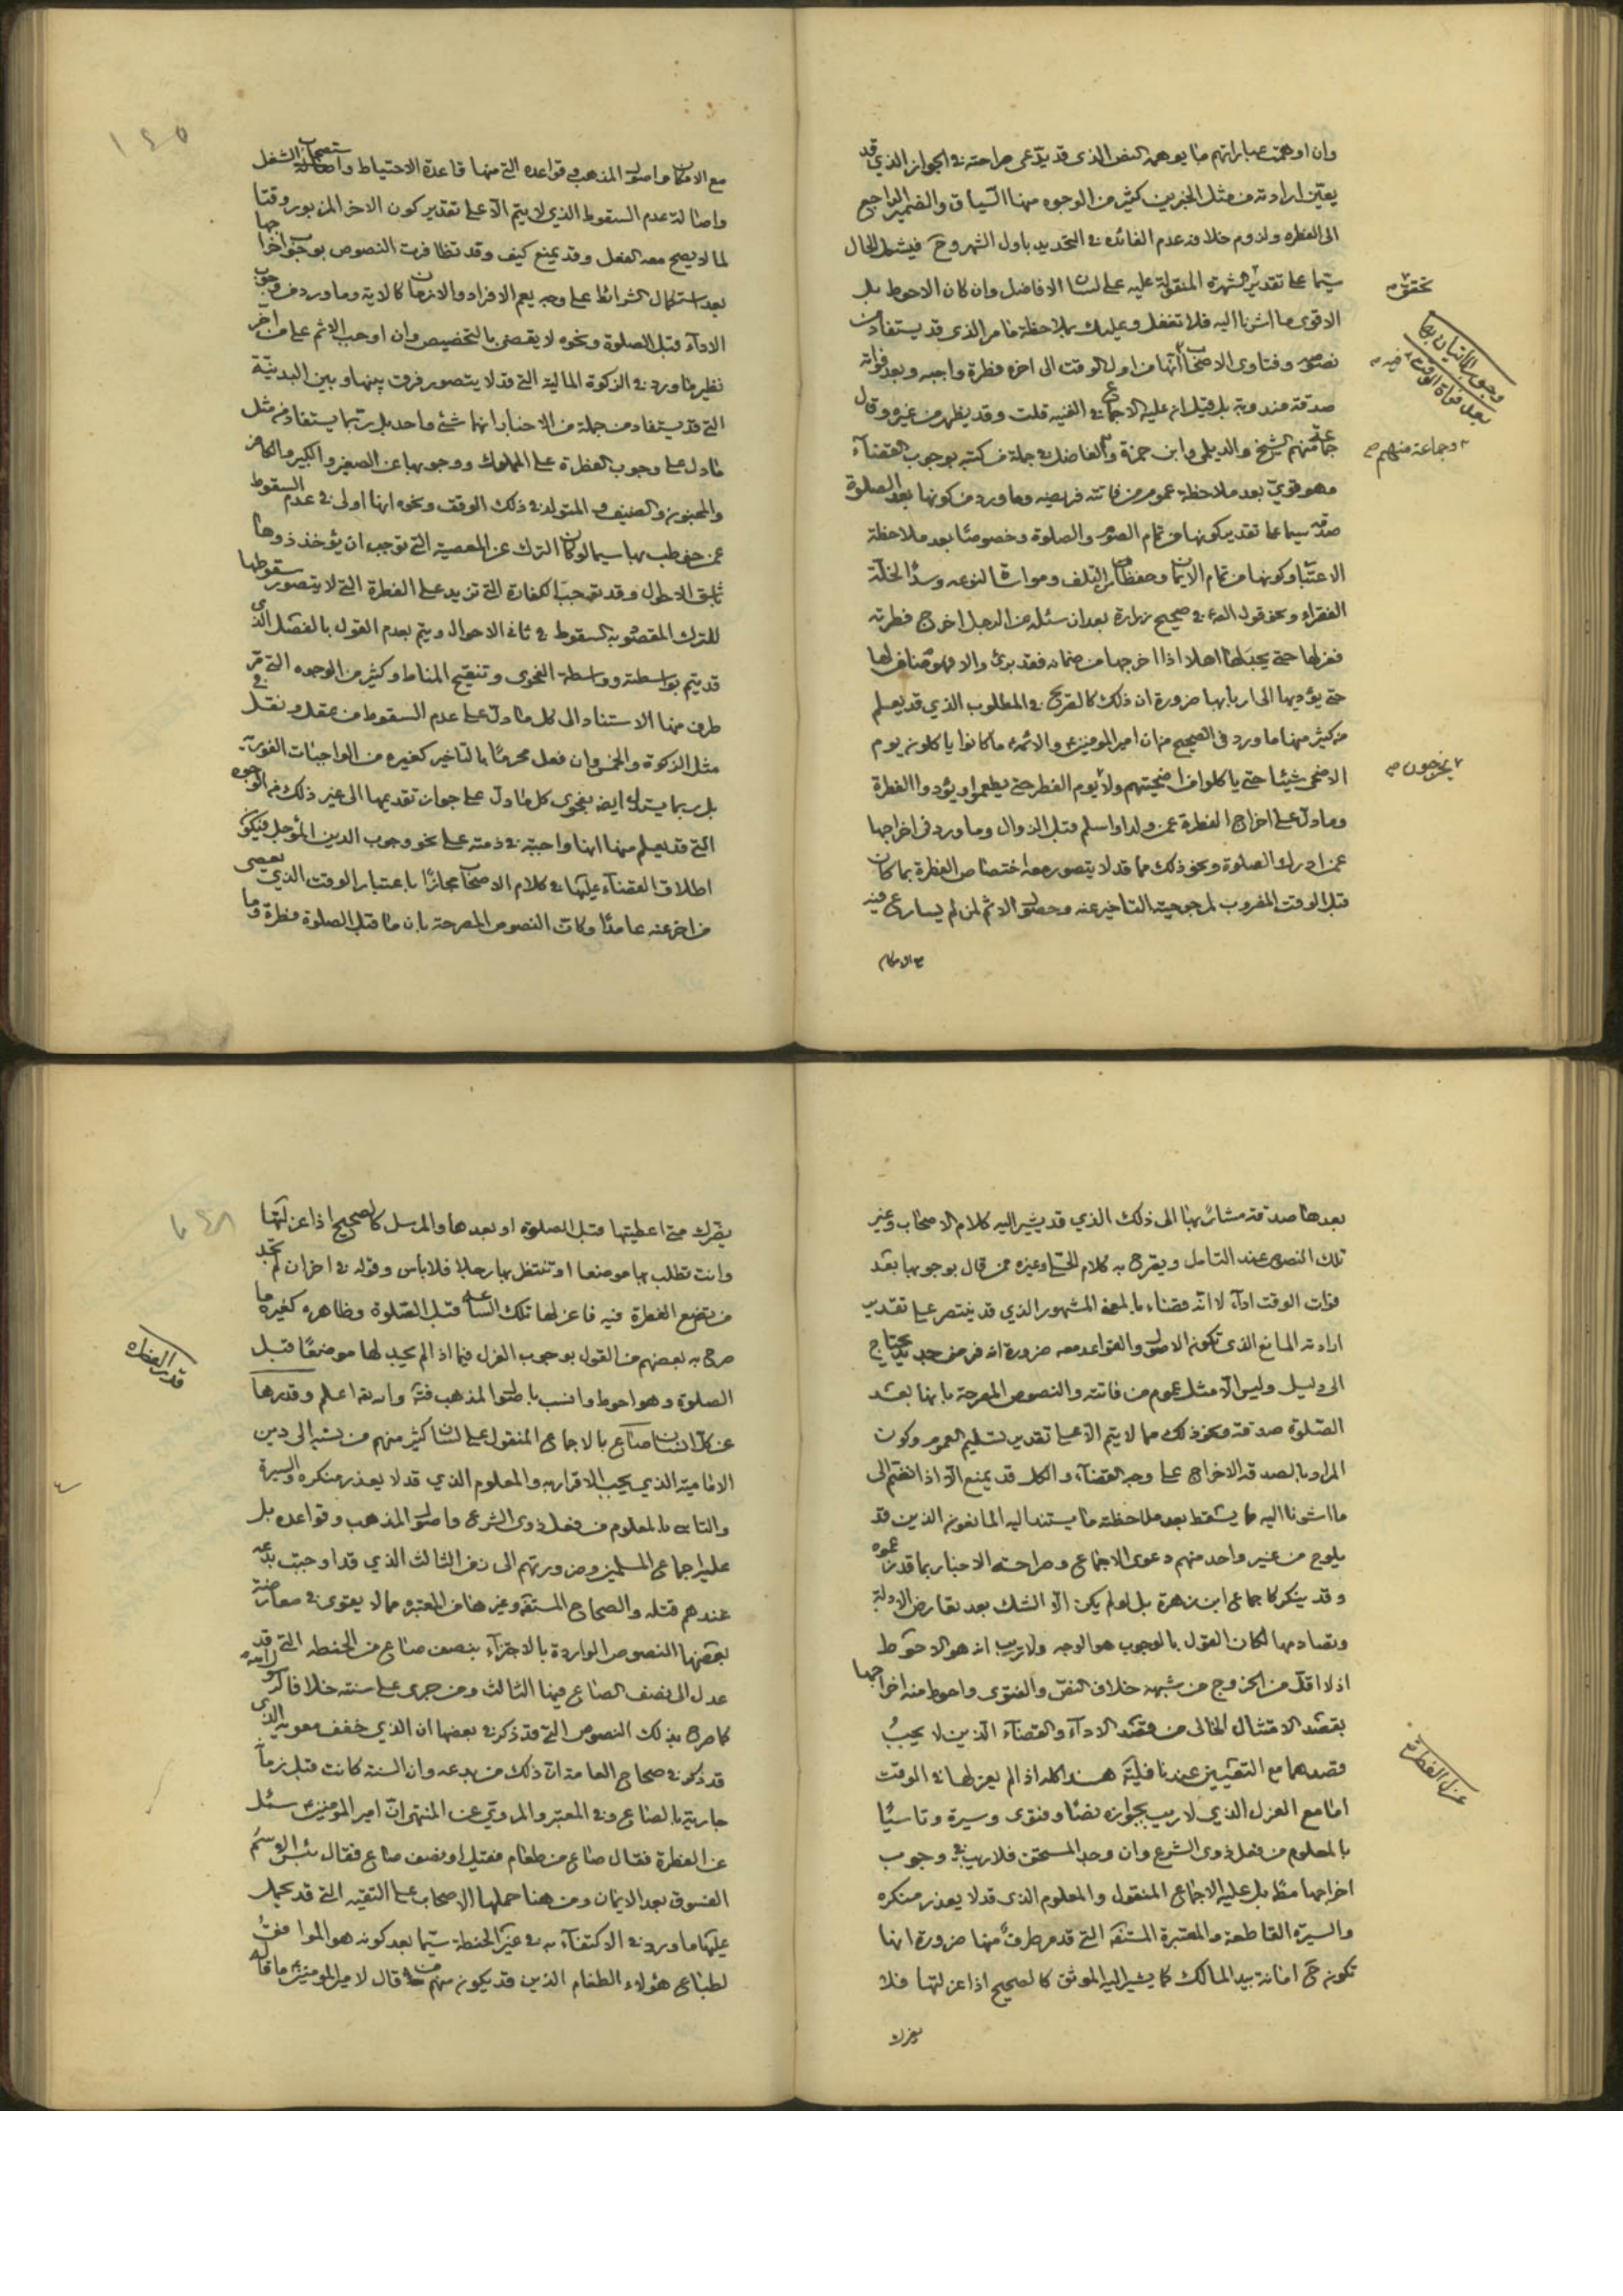 وان اوهمت عباراتهم ما يوهمه النص الذى قد يدّعى صراحته في الجواز الذي قد
يعيّن ارادته من مثل الخبرين كثير من الوجوه منها السياق والضمير الراجع
الى الفطره ولزوم خلافه عدم الفائده في التحديد باول الشهر وح فيشمل الحال
سيّما على تقدير الشهرة المنقولة عليه على لسان الافاضل وان كان الاحوط بل
تحقق
الاقوى ما اشرنا اليه فلا تغفل وعليك بملاحظة ما مر الذى قد يستفاد من
وجوب الاتيان بها
بعد فوات الوقت
نصوص وفتاوى الاصحاب انها من اول الوقت الى اخره فطرة واجبه وبعد فواته
صدقة مندوبة بل قيل ان عليه الاجماع في الغنيه قلت وقد يظهر من غيره وقال
جماعة منهم الشيخ والديلمى وابن حمزة والفاضل في جملة من كتبه بوجوب القضاء
وجماعة منهم صح
وهو قويّ بعد ملاحظة عموم من فاتته فريضه وما ورد من كونها بعد الصلوة
صدقة سيما على تقدير كونها من تمام الصوم والصلوة وخصوصًا بعد ملاحظة
الاعتبار وكونها من تمام الايمان وحفظا من التلف ومواساة لنوعه وسدّ الخلّة
الفقراء ونحو قوله في صحيح زرارة بعد ان سئله عن الرجل اخرج فطرته
فعزلها حتى يجد لها اهلا اذا اخرجها من ضمانه فقد برئ والا فهو ضامن لها
حتى يؤديها الى اربابها ضرورة ان ذلك كالصّريح في المطلوب الذي قد يعلم
من كثير منها ما ورد في الصحيح من ان امير المؤمنين والائمه ما كانوا ياكلون يوم
الاضحى شيئا حتى ياكلوا من اضحيتهم ولا يوم الفطر حتى يطعموا ويؤدوا الفطرة
يخرجون صح
وما دل على اخراج الفطرة عمن ولد او اسلم قبل الزوال وما ورد في اخراجها
عمن ادرك الصلوة ونحو ذلك مما قد لا يتصور معه اختصاص الفطرة بما كان
قبل الوقت المضروب لمرجوحية التاخير عنه وحصول الاثم لمن لم يسارع فيه
مع الامكان
١٤٥
مع الامكان واصول المذهب وقواعده التي منها قاعدة الاحتياط واستصحاب الشغل
واصالة عدم السقوط الذي لا يتم الا على تقدير كون الاخر المزبور وقتا
لما لا يصح معه الفعل وقد يمنع كيف وقد تظافرت النصوص بوجوب اخراجها
بعد استكمال الشرائط على وجه يعم الافراد والازمان كالاية وما ورد من وجوب
الاداء قبل الصلوة ونحوه لا يقضى بالتخصيص وان اوجب الاثم على من اخر
نظير ما ورد في الزكوة المالية التي قد لا يتصور فرق بينها وبين البدنيّة
التي قد يستفاد من جملة من الاخبار انهما شئ واحد بل ربّما يستفاد من مثل
ما دل على وجوب الفطرة على المملوك ووجوبها عن الصغير والكبير والكافر
والمجنون والضيف والمتولد في ذلك الوقت ونحوه انها اولى في عدم السقوط
عمن خوطب بها سيما لو كان الترك عن المعصية التي توجب ان يؤخذ ذووها
باشق الاحوال وقد توجب الكفارة التي تزيد على الفطرة التي لا يتصور سقوطها
للترك المقصود به السقوط في ثاني الاحوال ويتم بعدم القول بالفصل الذى
قد يتم بواسطته وواسطة الفحوى وتنقيح المناط وكثير من الوجوه التي مرّ
طرف منها الاستناد الى كل ما دل على عدم السقوط من عقل ونقل في
مثل الزكوة والخمس وان فعل محرمًا بالتاخير كغيره من الواجبات الفوريّة
بل ربما يستدل ايضا بفحوى كل ما دل على جواز تقديمها الى غير ذلك من الوجوه
التي قد يعلم منها انها واجبة في ذمته على نحو وجوب الدين المؤجل فيكون
اطلاق القضاء عليها في كلام الاصحاب مجازًا باعتبار الوقت الذي يعصى
من اخر عنه عامدًا وكانت النصوص المصرحة بان ما قبل الصلوة فطرة وما
بعدها صدقة مشارًا بها الى ذلك الذي قد يشير اليه كلام الاصحاب وغير
تلك النصوص عند التامل ويصرح به كلام الحلي وغيره ممن قال بوجوبها بعد
فوات الوقت اداء لا انّه قضاء بالمعنى المشهور الذي قد يقتصر على تقدير
ارادته المانع الذي تكون الاصول والقواعد معه ضرورة انه فرض جديد يحتاج
الى دليل وليس الا مثل عموم من فاتته والنصوص المصرحة بانها بعد
الصّلوة صدقة ونحو ذلك مما لا يتم الا على تقدير تسليم العموم وكون
المراد بالصدقة الاخراج على وجه القضاء والكل قد يمنع الا اذا انضم الى
ما اشرنا اليه مما يسقط بعد ملاحظته ما يستند اليه المانعون الذين قد
يلوح من غير واحد منهم دعوى الاجماع وصراحة الاخبار بما قد زعموه
وقد ينكر كاجماع ابن زهرة بل لو لم يكن الا الشك بعد تعارض الادلة
وتصادمها لكان القول بالوجوب هو الوجه ولا ريب انه هو الاحوط
اذ لا اقل من الخروج من شبهه خلاف النصّ والفتوى واحوط منه اخراجها
بقصد الامتثال الخالى من قصد الاداء والقضاء الذين لا يجبُ
قصدهما مع التعيين عندنا في النيّة هذا كله اذا لم يعزلها في الوقت
عزل الفطرة
امّا مع العزل الذي لا ريب بجوازه نصًا وفتوى وسيرة وتاسيًا
بالمعلوم من فعل ذوى الشرع وان وجد المستحق فلا ريب في وجوب
اخراجها مطلقا بل عليه الاجماع المنقول والمعلوم الذى قد لا يعذر منكره
والسيرة القاطعة والمعتبرة المستفيضة التي قد مر طرفٌ منها ضرورة انها
تكون ح امانة بيد المالك كما يشير اليه الموثق كالصحيح اذا عزلتها فلا
يضرك
يضرك متى اعطيتها قبل الصلوة او بعدها والمرسل كالصحيح اذا عزلتها
وانت تطلب بها موضعا او تنتظر بها رجلا فلا باس وقوله في اخر ان لم تجد
من تضع الفطرة فيه فاعزلها تلك الساعة قبل الصّلوة وظاهره كغيره ما
صرح به بعضهم من القول بوجوب العزل فيما اذا لم يجد لها موضعًا قبل
قدر الفطره
الصلوة وهو احوط وانسب باصول المذهب فيه والله اعلم وقدرها
عن كل انسان صاع بالاجماع المنقول على لسان كثير منهم من نسبه الى دين
الاماميّة الذي يجب الاقرار به والمعلوم الذي قد لا يعذر منكره والسيرة
والتاسى بالمعلوم من فعل ذوى الشرع واصول المذهب وقواعده بل
عليه اجماع المسلمين وضرورتهم الى زمن الثالث الذي قد اوجبت بدعه
عندهم قتله والصحاح المستفيضة وغيرها من المعتبره مما لا يقوى في معارضة
بعضها النصوص الواردة بالاجزاء بنصف صاع من الحنطه التي قد
عدل الى نصف الصاع فيها الثالث ومن جرى على سنته خلافا
كما صرح بذلك النصوص التي قد ذكر في بعضها ان الذي خفف معوية الذى
قد ذكر في صحاح العامة ان ذلك من بدعه وان السنه كانت قبل زمانه
جارية بالصاع وفي المعتبر والمروي عن المنتهى ان امير المؤمنين سئل
عن الفطرة فقال صاع من طعام فقيل او نصف صاع فقال بئس الاسم
الفسوق بعد الايمان ومن هنا حملها الاصحاب على التقيه التي قد يحمل
عليها ما ورد في الاكتفاء به في غير الحنطة سيّما بعد كونه هو الموافقُ
لطباع هؤلاء الطغام الذين قد يكون منهم من قال لامير المؤمنين ما قاله